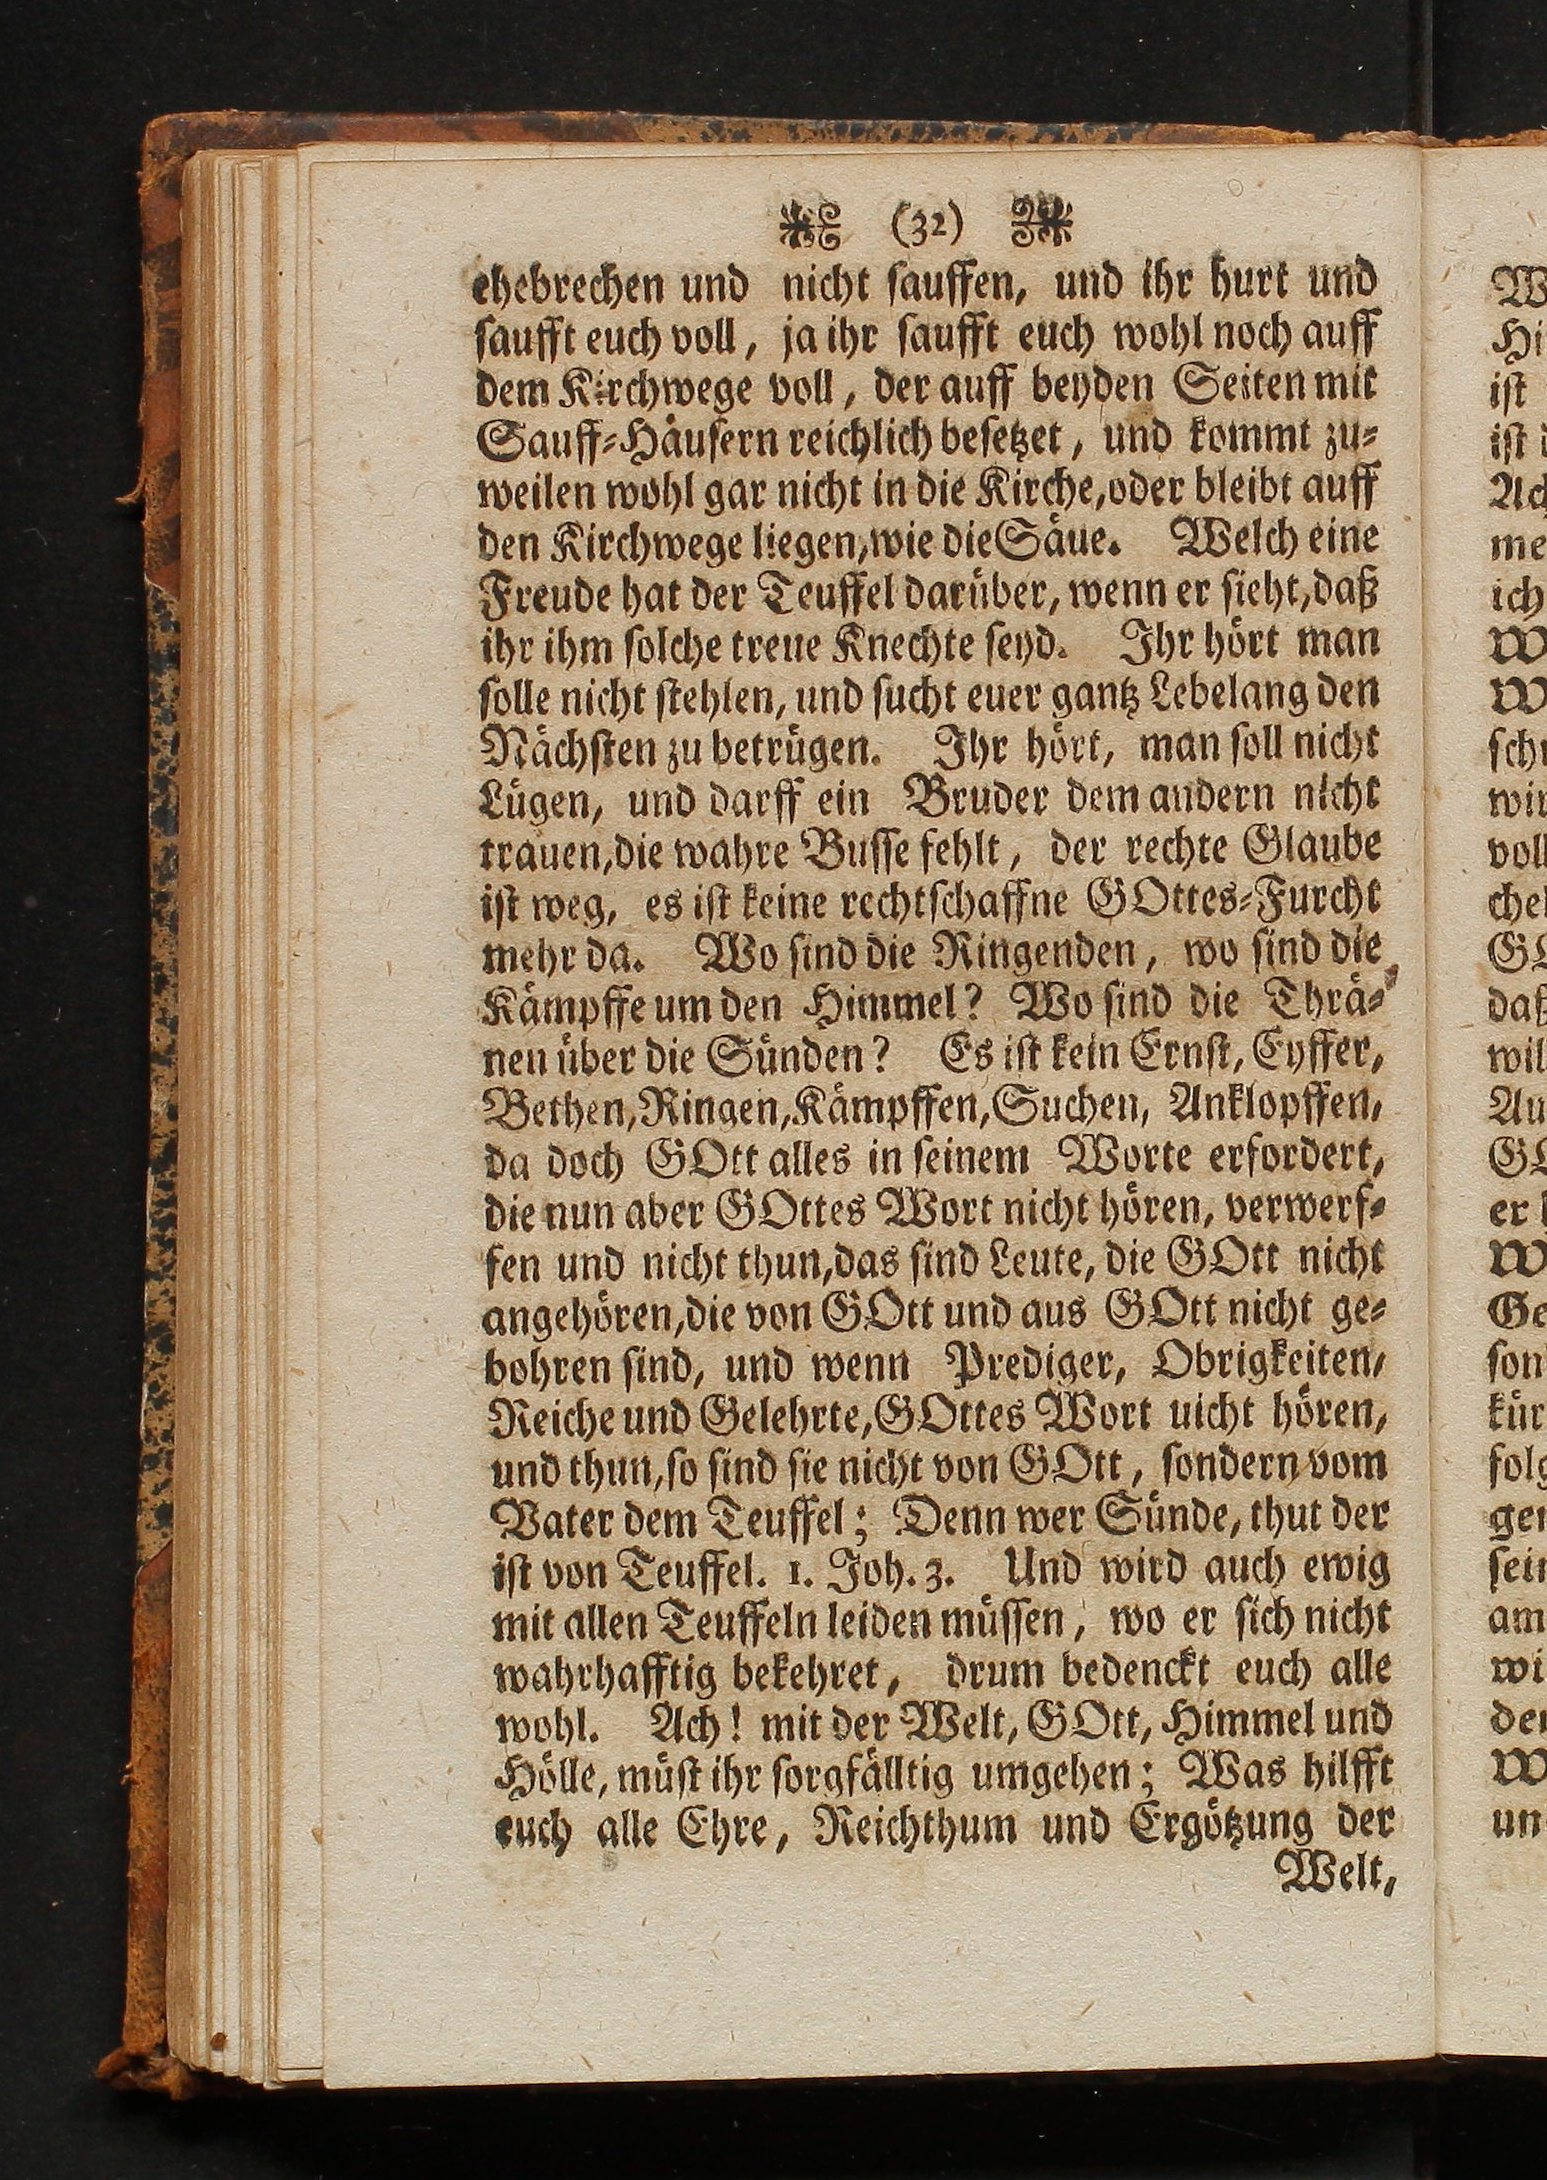 (32)
ehebrechen und nicht sauffen, und ihr hurt und
saufft euch voll, ja ihr saufft euch wohl noch auff
dem Kirchwege voll, der auff beyden Seiten mit
Sauff-Häusern reichlich besetzet, und kommt zu-
weilen wohl gar nicht in die Kirche, oder bleibt auff
den Kirchwege liegen, wie die Säue. Welch eine
Freude hat der Teuffel darüber, wenn er sieht, daß
ihr ihm solche treue Knechte seyd. Ihr hört man
solle nicht stehlen, und sucht euer gantz Lebelang den
Nächsten zu betrügen. Ihr hört, man soll nicht
Lügen, und darff ein Bruder dem andern nicht
trauen, die wahre Busse fehlt, der rechte Glaube
ist weg, es ist keine rechtschaffne GOttes-Furcht
mehr da. Wo sind die Ringenden, wo sind die
Kämpffe um den Himmel? Wo sind die Thrä-
nen über die Sünden? Es ist kein Ernst, Eyffer,
Bethen, Ringen, Kämpffen, Suchen, Anklopffen,
da doch GOtt alles in seinem Worte erfordert,
die nun aber GOttes Wort nicht hören, verwerf-
fen und nicht thun, das sind Leute, die GOtt nicht
angehören, die von GOtt und aus GOtt nicht ge-
bohren sind, und wenn Prediger, Obrigkeiten,
Reiche und Gelehrte, GOttes Wort uicht hören,
und thun, so sind sie nicht von GOtt, sondern vom
Vater dem Teuffel; Denn wer Sünde, thut der
ist von Teuffel. 1. Joh. 3. Und wird auch ewig
mit allen Teuffeln leiden müssen, wo er sich nicht
wahrhafftig bekehret, drum bedenckt euch alle
wohl. Ach! mit der Welt, GOtt, Himmel und
Hölle, müst ihr sorgfälltig umgehen; Was hilfft
euch alle Ehre, Reichthum und Ergötzung der
Welt,